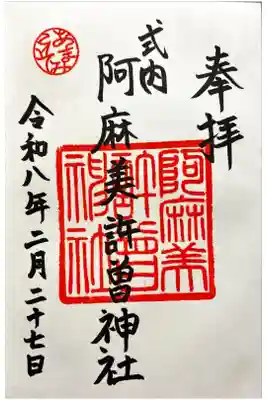 奉拝
式内
阿麻美許曽神社
阿麻美
許曽
神社
令和八年二月二十七日